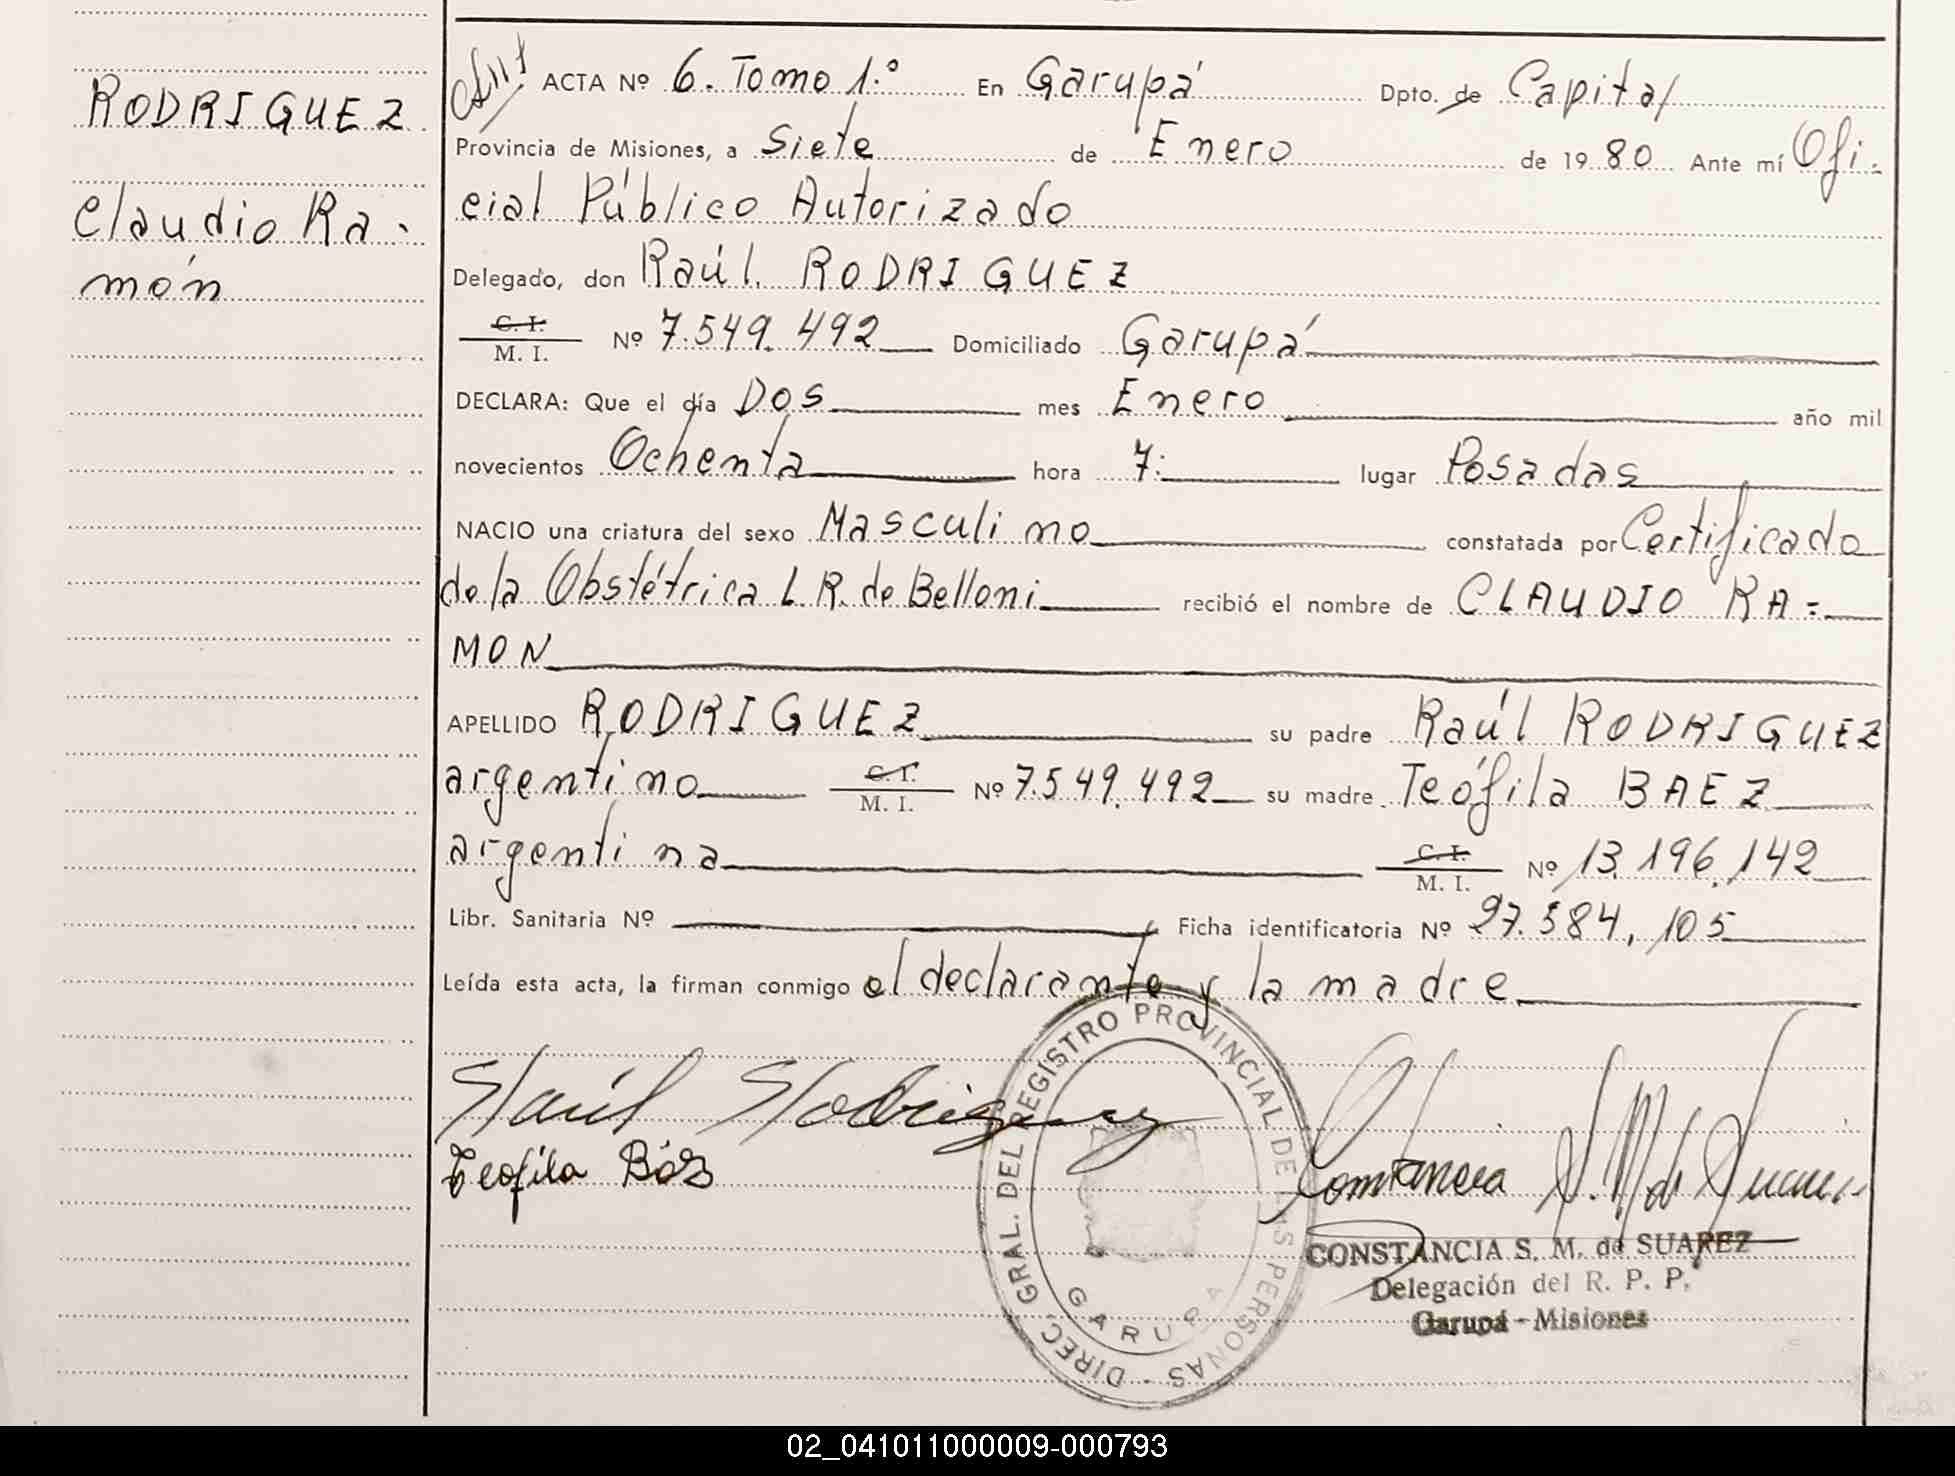 RODRIGUEZ
Claudio Ra-
món
ACTA Nº 6. Tomo 1.º En Garupá Dpto. de Capital
Provincia de Misiones, a Siete de Enero de 1980 Ante mí Ofi-
cial Público Autorizado
Delegado, don Raúl RODRIGUEZ
C. I.
M. I. Nº 7.549.492 Domiciliado Garupá
DECLARA: Que el día Dos mes Enero año mil
novecientos Ochenta hora 7: lugar Posadas
NACIO una criatura del sexo Masculino constatada por Certificado
de la Obstétrica L. R. de Belloni recibió el nombre de CLAUDIO RA=
MON
APELLIDO RODRIGUEZ su padre Raúl RODRIGUEZ
argentino C. I.
M. I. Nº 7.549.492 su madre Teófila BAEZ
argentina C. I.
M. I. Nº 13.196.142
Libr. Sanitaria Nº Ficha identificatoria Nº 27.584.105
Leída esta acta, la firman conmigo el declarante y la madre
Raúl Rodriguez
Teofila Báz
Constancia S. M. de Suarez
CONSTANCIA S. M. de SUAREZ
Delegación del R. P. P.
Garupá - Misiones
DIREC. GRAL. DEL REGISTRO PROVINCIAL DE LAS PERSONAS -
GARUPA
02_041011000009-000793